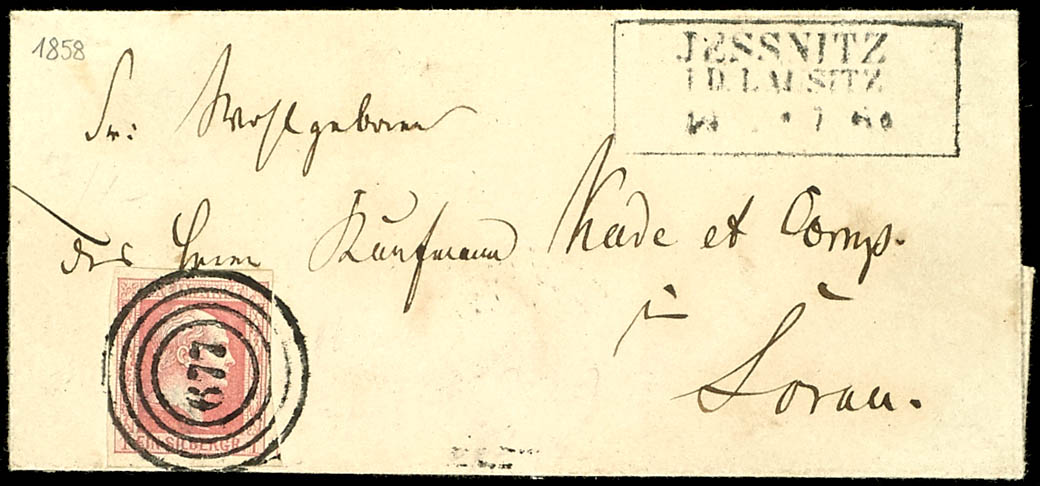 1858
JESSNITZ
I D. LAUSITZ
7
Sr: Wohlgeboren
des Herrn Kaufmann Kade et Comp.
in
Sorau.
677
EIN SILBERGR.